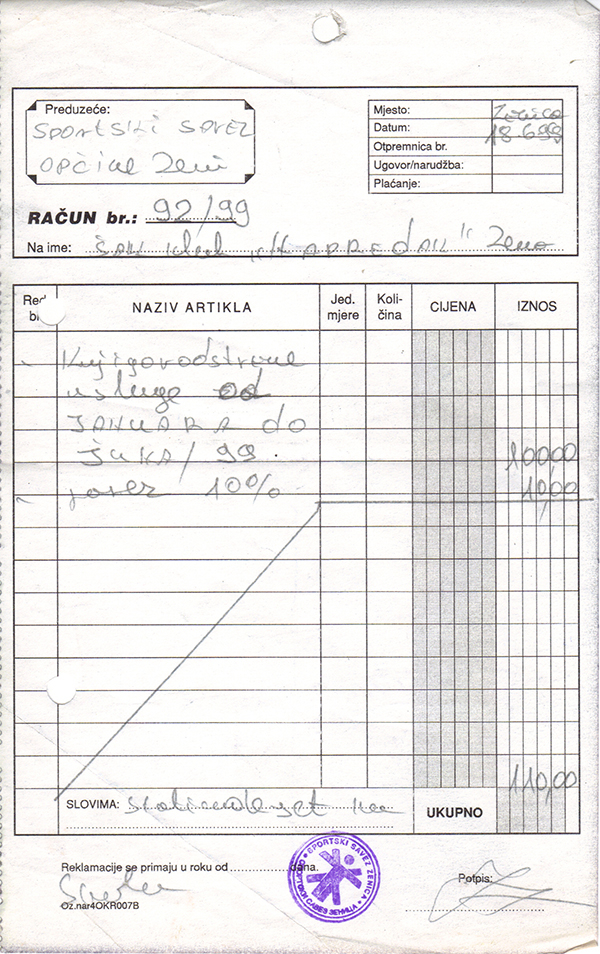 Preduzeće:
SPORTSKI SAVEZ
OPĆINE Zeni
Mjesto: Zenica
Datum: 18.6.99
Otpremnica br.
Ugovor/narudžba:
Plaćanje:
RAČUN br.: 92/99
Na ime: ŠAH klub "NAPREDAK" Zenica
Red. br. NAZIV ARTIKLA Jed. mjere Količina CIJENA IZNOS
Knjigovodstvene
usluge od
JANUARA do
JUNA/99 100,00
porez 10% 10,00
110,00
SLOVIMA: Stotinudeset KM
UKUPNO
Reklamacije se primaju u roku od dana.
Potpis:
Oz.nar4OKR007B
SPORTSKI SAVEZ ZENICA